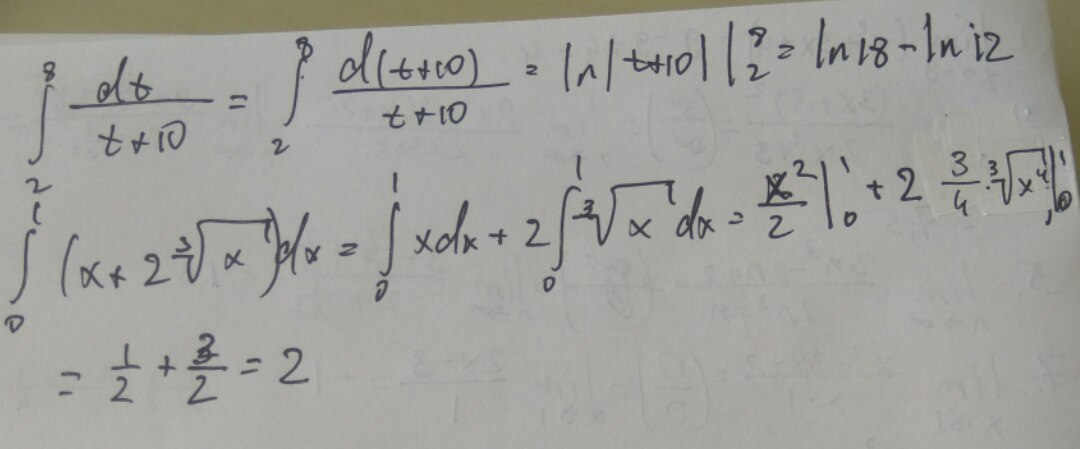 ∫₂⁸ dt/(t+10) = ∫₂⁸ d(t+10)/(t+10) = ln|t+10| |₂⁸ = ln 18 - ln 12
∫₀¹ (x + 2∛x)dx = ∫₀¹ xdx + 2∫₀¹ ∛x dx = x²/2 |₀¹ + 2 3/4 · ∛x⁴ |₀¹
= 1/2 + 3/2 = 2